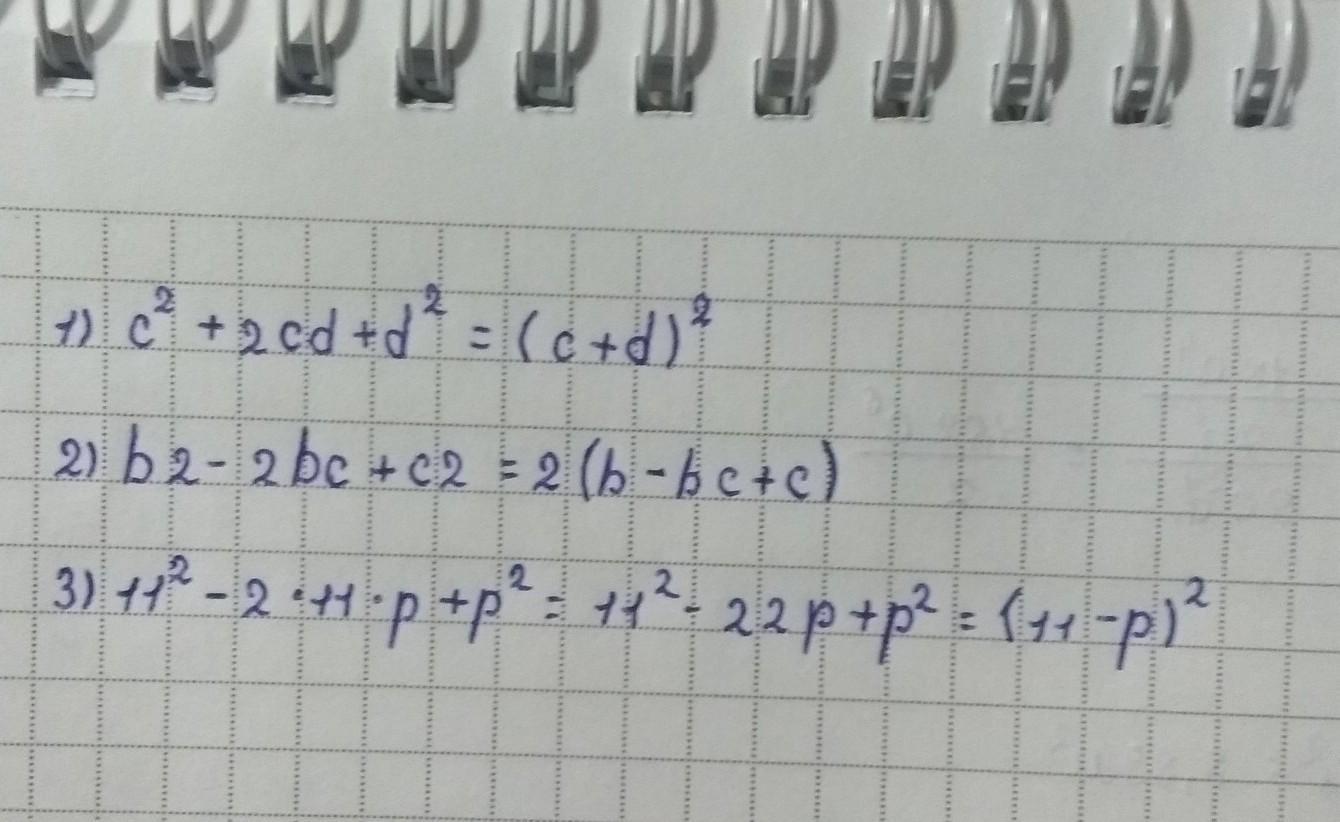 1) c² + 2cd + d² = (c + d)²
2) b2 - 2bc + c2 = 2(b - bc + c)
3) 11² - 2 · 11 · p + p² = 11² - 22p + p² = (11 - p)²